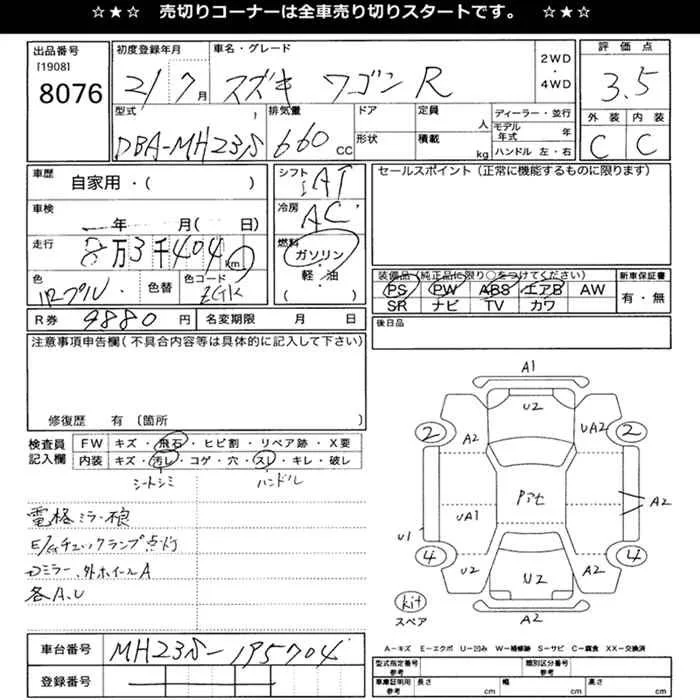 ☆★☆ 売切りコーナーは全車売り切りスタートです。 ☆★☆
出品番号
[1908]
8076
初度登録年月
21 7月
車名・グレード
スズキ ワゴン R
2WD
・
4WD
評価点
3.5
外装 内装
C C
型式
DBA-MH23S
排気量
660 CC
ドア
形状
定員
人
積載
kg
ディーラー・並行
モデル年式 年
ハンドル 左・右
車歴
自家用・( )
車検
年 月( 日)
走行
8万3千404km
色
パープル
色替
色コード
ZGK
シフト
AT
冷房
AC
燃料
ガソリン
・
軽・油
( )
セールスポイント (正常に機能するものに限ります)
装備品 (純正品に限り○をつけてください)
PS PW ABS エアB AW
SR ナビ TV カワ
新車保証書
有・無
R券 9880円
名変期限 月 日
後日品
注意事項申告欄 (不具合内容等は具体的に記入して下さい)
修復歴 有 〔箇所 〕
検査員
記入欄
FW キズ・飛石・ヒビ割・リペア跡・X要
内装 キズ・汚レ・コゲ・穴・スレ・キレ・破レ
シートシミ ハンドル
電格ミラー損
E/Gチェックランプ点灯
Dミラー、外ホイールA
各A、U
A1
U2
2 A2 UA2 2
UA1 Pit A2
U1
4 U2 U2 A2 4
A2
kit
スペア
A−キズ E−エクボ U−凹み W−補修跡 S−サビ C−腐食 XX−交換済
車台番号 MH23S-195704
登録番号
型式指定番号
参考
類別区分番号
参考
車庫証明用
参考
長さ cm 幅 cm 高さ cm